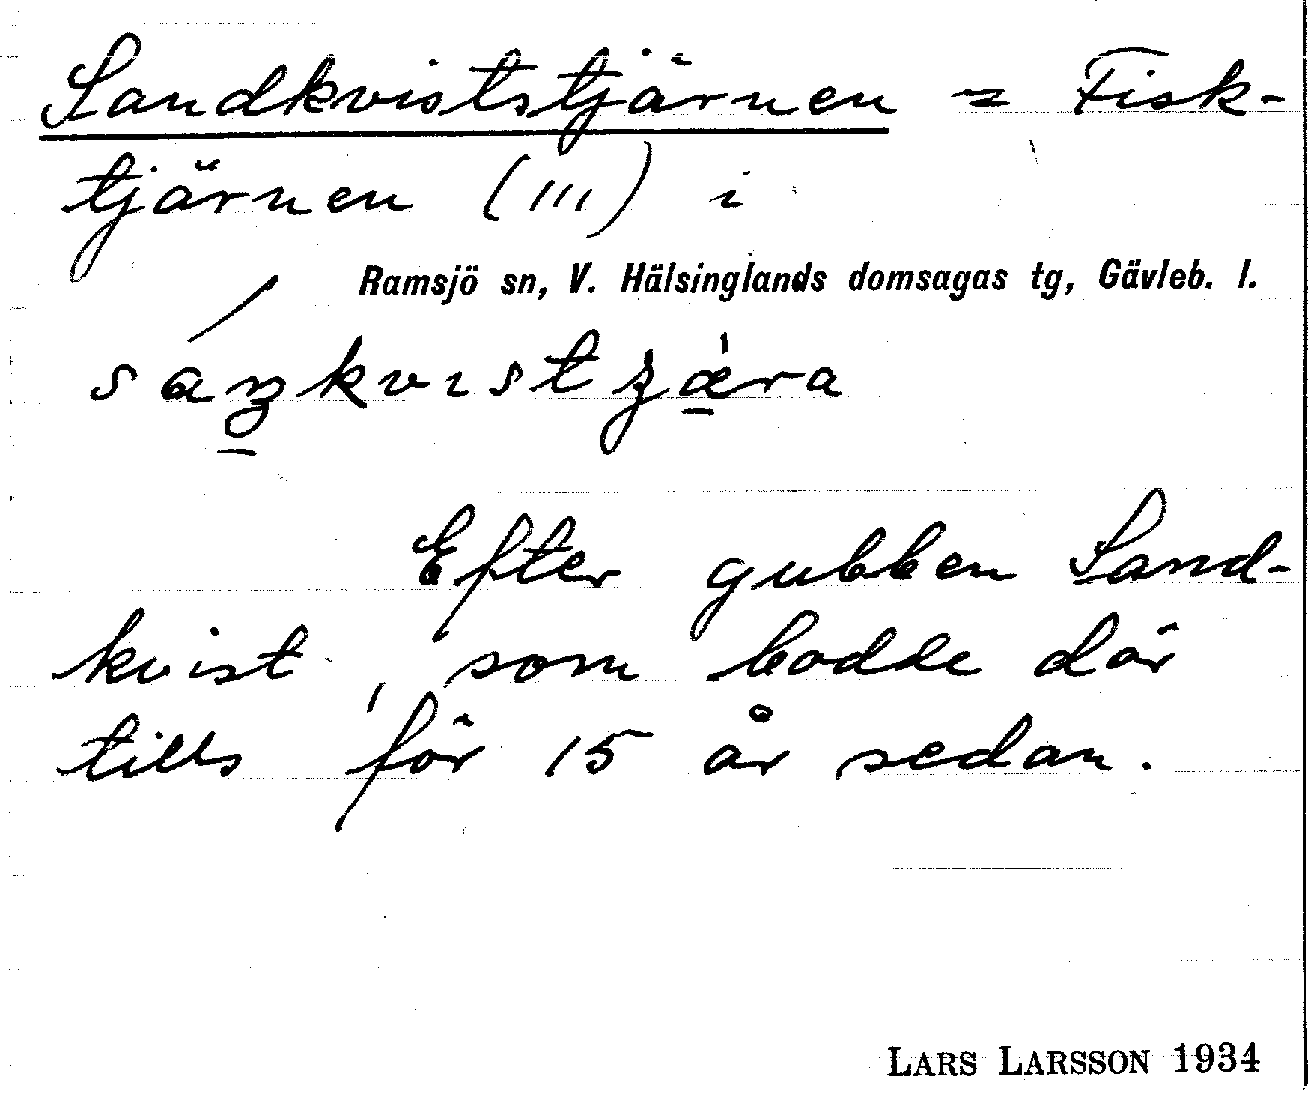 Sandkviststjärnen = Fisk-
tjärnen (III) i
Ramsjö sn, V. Hälsinglands domsagas tg, Gävleb. l.
Efter gubben Sand-
kvist, som bodde där
tills för 15 år sedan.
LARS LARSSON 1934